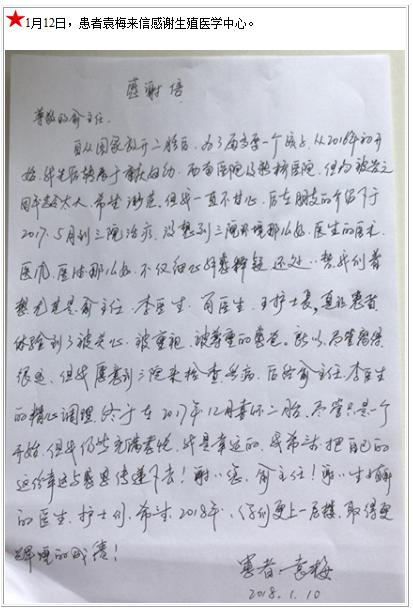 ★1月12日，患者袁梅来信感谢生殖医学中心。
感谢信
尊敬的俞主任：
自从国家放开二胎后，为了再要一个孩子，从2016年初开
始，我先后转辗于
医院，但均被告之
因年龄太大，希望渺茫。但我一直不甘心，后在朋友的介绍下于
2017.5月到三院治疗，没想到三院环境那么好，医生的医术、
医风、医德那么好，不仅细心
处处替我们着
想，尤其是俞主任、李医生、肖医生、王护士长，真让患者
体验到了被关心、被重视、被尊重的
。所以，尽管离得
很远，但我愿意到三院来检查看病，后经俞主任、李医生
的精心调理，终于在2017年12月喜怀二胎，尽管只是一个
开始，但我仍然充满喜悦，我是幸运的，我希望把自己的
这份幸运与感恩传递下去！谢谢您，俞主任！谢谢生殖
的医生、护士们，希望2018年，你们更上一层楼，取得更
辉煌的成绩！
患者：袁梅
2018.1.10